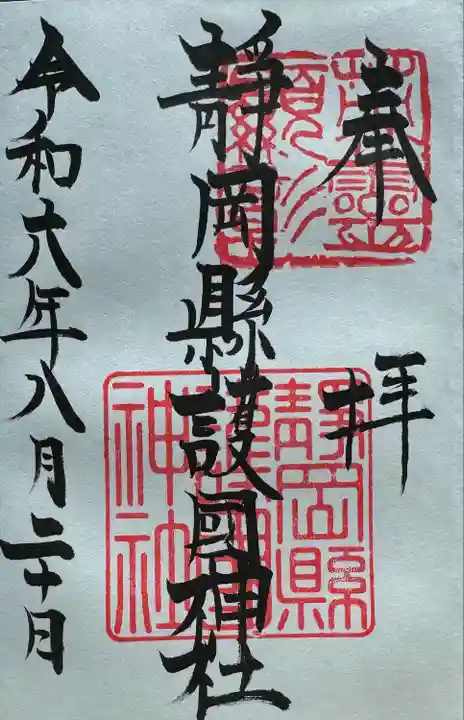 奉拝
靜岡縣護國神社
令和六年八月二十日
靜岡縣護國神社